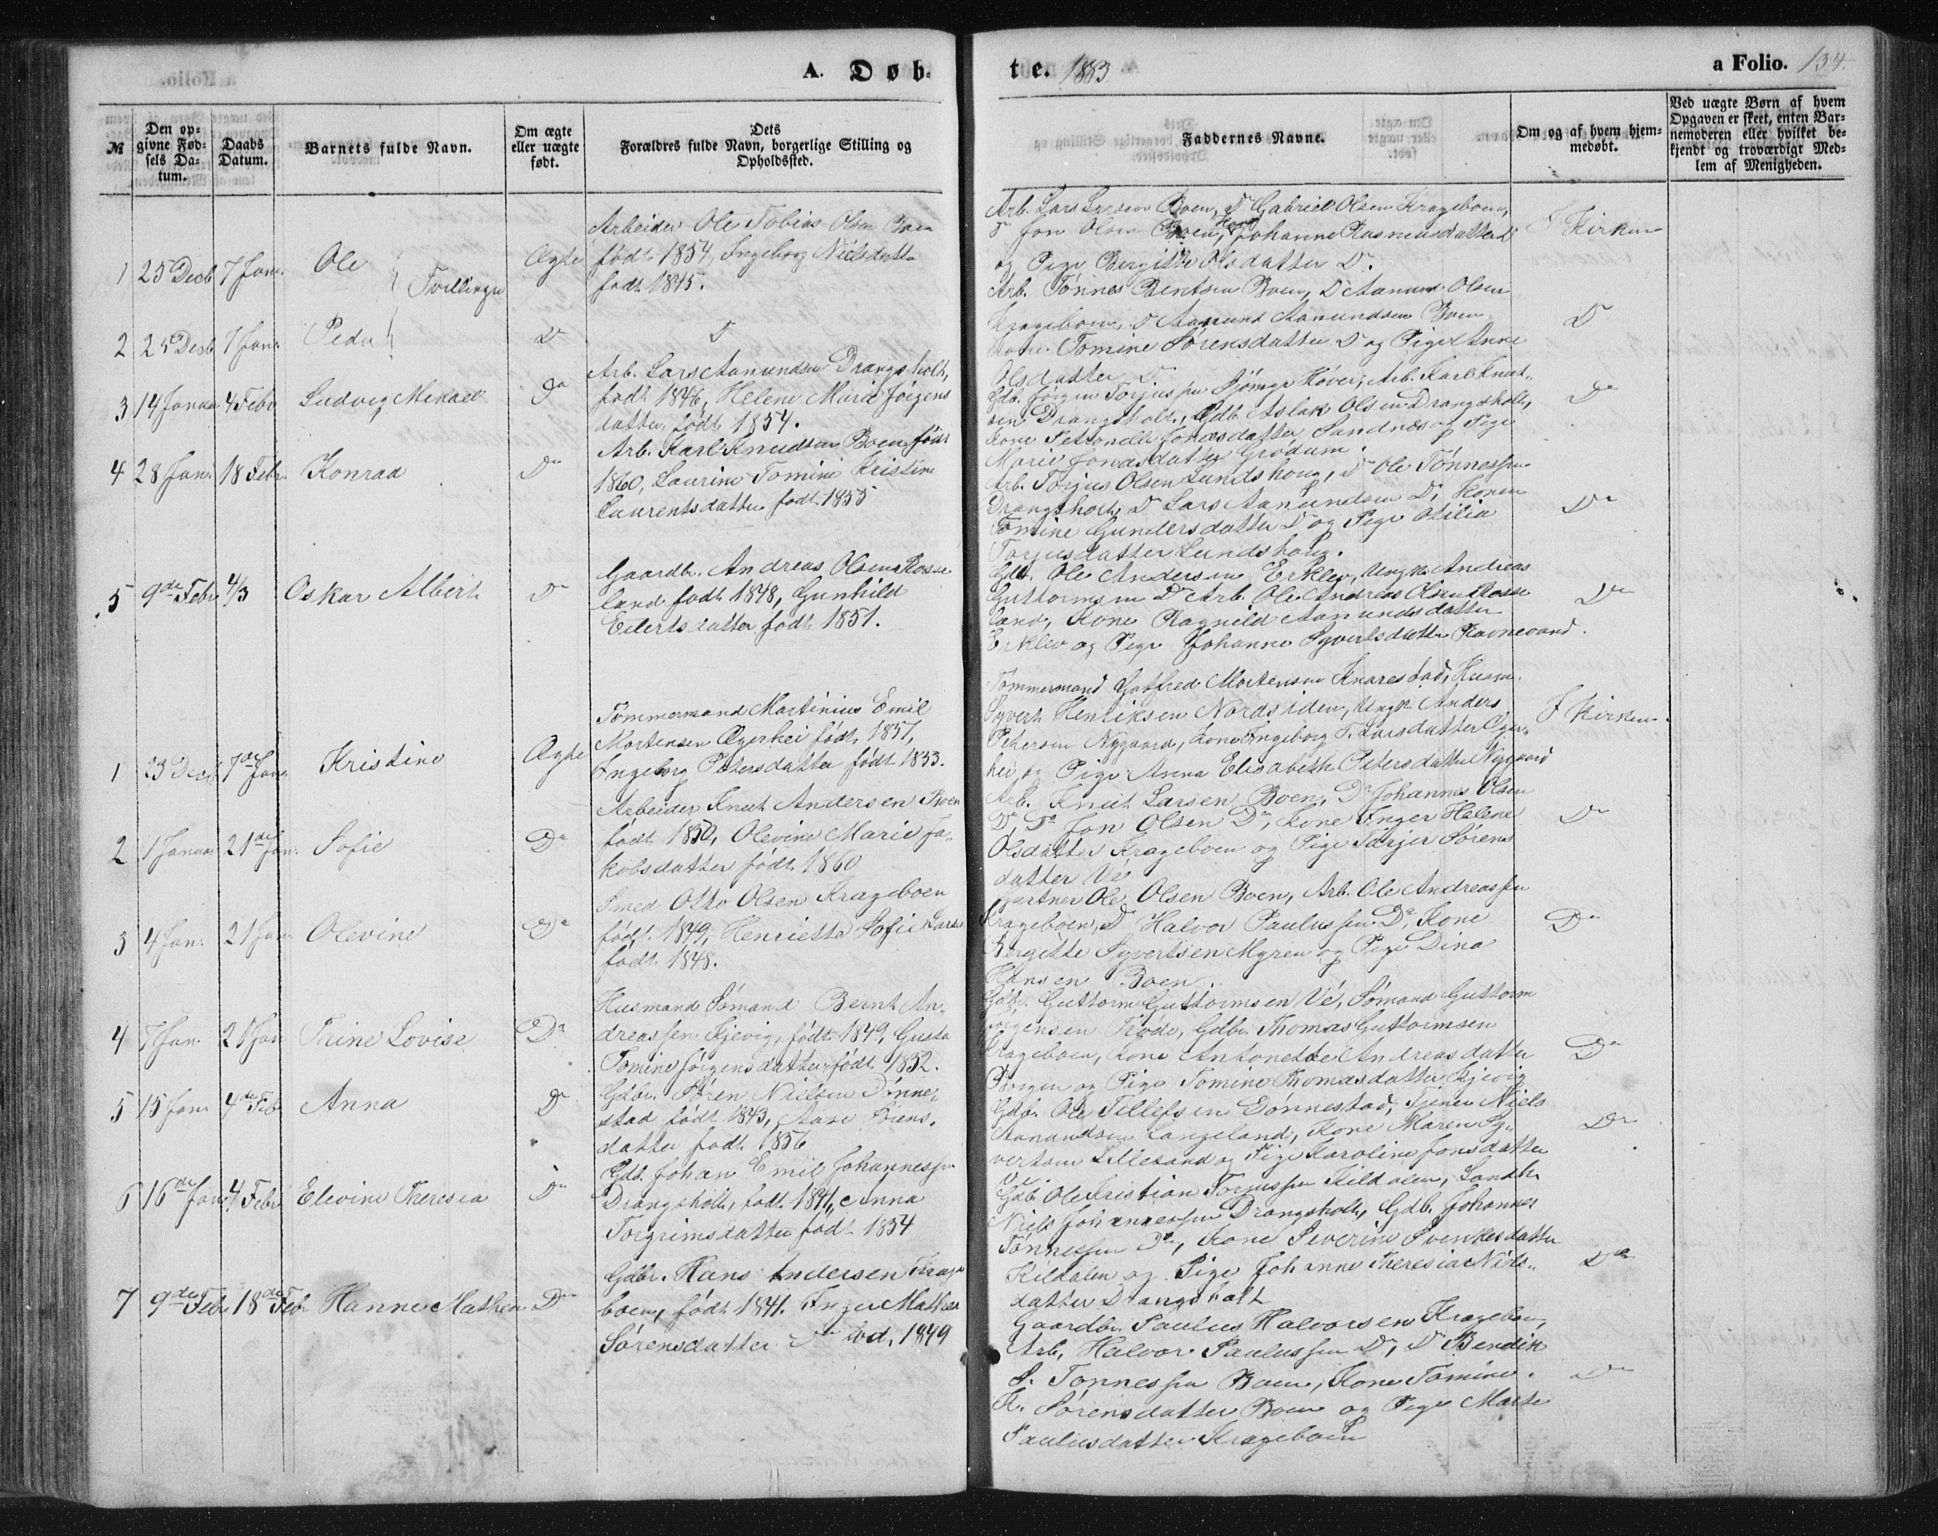 A. Døbte. 1883
a Folio. 134.
№
Den opgivne Fødsels Datum.
Daabs Datum.
Barnets fulde Navn.
Om ægte eller uægte født.
Dets Forældres fulde Navn, borgerlige Stilling og Opholdssted.
Faddernes Navne.
Om og af hvem hjemmedøbt.
Ved uægte Børn af hvem Opgaven er skeet, enten Barnemoderen eller hvilket bekjendt og troværdigt Medlem af Menigheden.
1 25 Decb 7 Jan. Ole } Tvillinger Ægte
Arbeider Ole Tobias Olsen Boen
født 1854, Ingeborg Nielsdatter
født 1845.
Arb. Lars Larsen Boen, Do Gabriel Olsen Krageboen,
Do Jon Olsen Boen, Kone Johanne Rasmusdatter Do
og Pige Bergitte Olsdatter Do.
I Kirken
2 25 Decb 7 Jan. Peder } Do
Do
Arb. Tønnes Bentsen Boen, Do Aanund Olsen
Krageboen, Do Aanund Aanundsen Boen
Kone Tomine Sørensdatter Do og Pige Anne
Olsdatter Do
Do
3 14 Januar 4 Febr Ludvig Mikael Do
Arb. Lars Aanundsen Drangsholt,
født 1846, Helene Marie Jørgens
datter, født 1854.
Gdb. Jørgen Torjussen Høver, Arb. Karl Knud-
sen Drangsholt, Gdb. Aslak Olsen Drangsholt,
Kone Petronelle Jonasdatter Sandnæs og Pige
Marie Jonasdatter Grødum.
Do
4 28 Jan. 18 Febr. Konrad Do
Arb. Karl Knudsen Boen født
1860, Laurine Tomine Kristine
Laurentsdatter født 1855
Arb. Torjus Olsen Lundshoug, Do Ole Tønnessen
Drangsholt, Do Lars Aanundsen Do, Konen
Tomine Gundersdatter Do og Pige Otilia
Torjusdatter Lundshoug.
Do
5 9de Febr 4/3 Oskar Albert Do
Gaardbr. Andreas Olsen Rosse
land født 1848, Gunhild
Eilertsdatter født 1851.
Gdb. Ole Andersen Erklev, Ungk. Andreas
Guttormsen Do Arb. Ole Andreas Olsen Rosse
land, Kone Ragnild Aanundsdatter
Erklev og Pige Johanne Syvertsdatter Ravnevand.
Do
1 23 Decb 7de Jan. Kristine Ægte
Tømmermand Martinius Emil
Mortensen Ægerhei født 1857,
Ingeborg Petersdatter født 1853.
Tømmermand Gotfred Mortensen Knarestad, Husm.
Syvert Henriksen Nordsiden, Ungk. Anders
Petersen Nygaard, Kone Ingeborg T. Larsdatter Æger-
hei og Pige Anna Elisabeth Petersdatter Nygaard
I Kirken.
2 1 Januar 21de Jan. Sofie Do
Arbeider Knut Andersen Boen
født 1850, Olevine Marie Ja-
kobsdatter født 1860
Arb. Knut Larsen Boen, Do Johannes Olsen
Do, Do Jon Olsen Do, Kone Inger Helene
Olsdatter Krageboen og Pige Tarjer Sørens
datter Ve
Do
3 4 Jan. 21 Jan. Olevine Do
Smed Otto Olsen Krageboen
født 1849, Henriette Sofie Lars
født 1848.
Gartner Ole Olsen Boen, Arb. Ole Andreassen
Krageboen, Do Halvor Paulussen Do, Kone
Bergitte Syvertsen Myren og Pige Dina
Hansen Boen.
Do
4 7 Jan. 21 Jan Trine Lovise Do
Husmand Sømand Bernt An-
dreassen Kjevig, født 1849, Gusta
Tomine Jørgensdatter født 1852.
Gdb. Guttorm Guttormsen Ve, Sømand Guttorm
Jørgensen Trode, Gdbr. Thomas Guttormsen
Krageboen, Kone Antonette Andreasdatter
Borgen og Pige Tomine Thomasdatter Kjevig
Do
5 15 Jan 4de Feb Anna Do
Gdbr. Søren Nielsen Dønne-
stad født 1843, Aase Jens-
datter født 1856
Gdb. Ole Tellefsen Dønnestad, Tjener Niels
Aanundsen Langeland, Kone Maren Sy-
vertsen Lillesand og Pige Karoline Jonsdatter
Ve
Do
6 16de Jan 4 Febr Elevine Theresia Do
Gdb. Johan Emil Johannessen
Drangsholt, født 1841, Anna
Torgrimsdatter født 1854
Gdb. Ole Kristian Torjussen Kildalen, Landh.
Niels Johannessen Drangsholt, Gdb. Johannes
Tønnessen Do, Kone Severine Svenkesdatter
Kildalen og Pige Johanne Theresia Niels-
datter Drangsholt
Do
7 9de Febr 18de Feb Hanne Mathea Do
Gdbr. Hans Andersen Krage
boen, født 1841. Inger Mathea
Sørensdatter Do fød. 1849
Gaardbr. Paulus Halvorsen Krageboen,
Arb. Halvor Paulussen Do, Do Bendik
S. Tønnessen Boen, Kone Tomine.
K. Sørensdatter Boen og Pige Marte
Paulusdatter Krageboen
Do